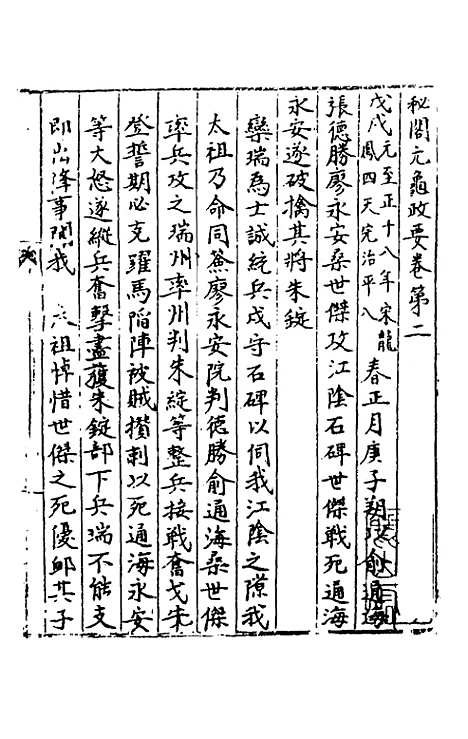 秘閣元龜政要卷第二
戊戌元至正十八年宋龍鳳四天完治平八春正月庚子朔 俞通海
張德勝廖永安桑世傑攻江陰石碑世傑戰死通海
永安遂破擒其將朱錠
欒瑞為士誠統兵戍守石碑以伺我江陰之隙我
太祖乃命同僉廖永安院判德勝俞通海桑世傑
率兵攻之瑞州率州判朱錠等整兵接戰奮戈朱
登誓期必克羅馬陷陣被賊攢刺以死通海永安
等大怒遂縱兵奮擊盡獲朱錠部下兵瑞不能支
即出降事聞我 太祖悼惜世傑之死優卹其子